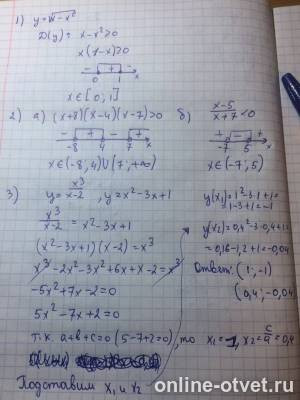 1) y=√x-x²
D(y)= x-x²≥0
x(1-x)≥0
- + -
0 1 x
x∈[0;1]
2) а) (x+8)(x-4)(x-7)>0
- + - +
-8 4 7 x
x∈(-8;4)∪(7;+∞)
б) x-5/x+7<0
+ - +
-7 5 x
x∈(-7;5)
3) y=x³/x-2, y=x²-3x+1
x³/x-2=x²-3x+1
(x²-3x+1)(x-2)=x³
x³-2x²-3x²+6x+x-2=x³
-5x²+7x-2=0
5x²-7x+2=0
т.к. a+b+c=0 (5-7+2=0), то x₁=1, x₂=c/a=0,4
Подставим x₁ и x₂
y(x₁)=1²-3·1+1=
=1-3+1=-1
y(x₂)=0,4²-3·0,4+1=
=0,16-1,2+1=-0,04
Ответ: (1;-1)
(0,4;-0,04
online-otvet.ru